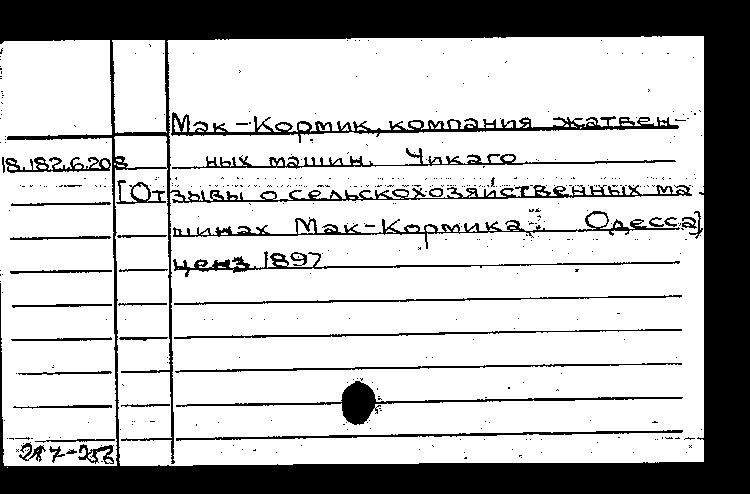 Мак-Кормик, компания жатвен-
18.182.6.208 ных машин. Чикаго
[Отзывы о сельскохозяйственных ма-
шинах Мак-Кормика. Одесса]
ценз 1897